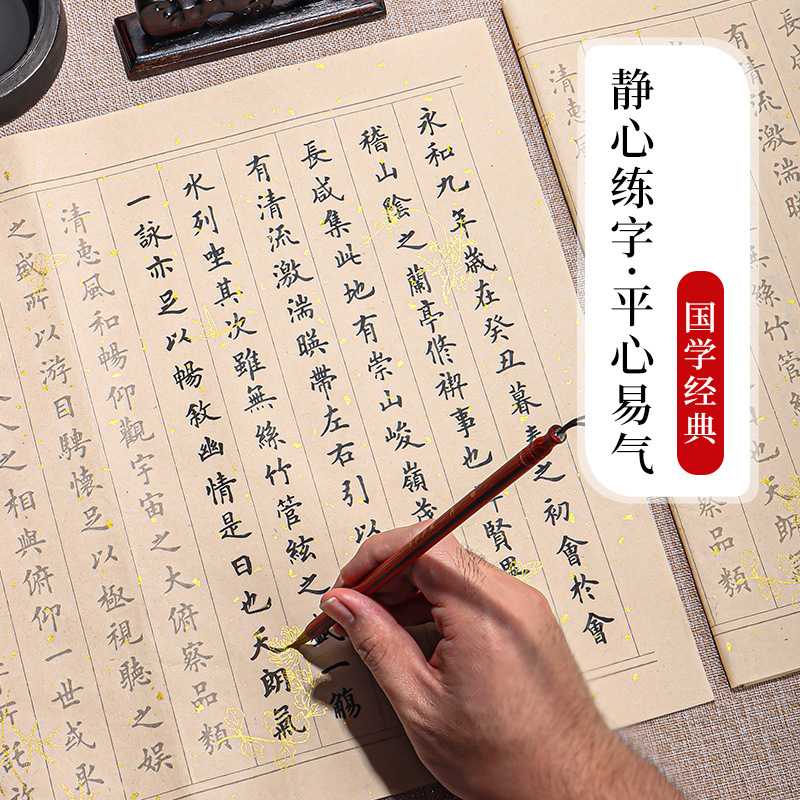 静心练字·平心易气
国学经典
永和九年歲在癸丑暮春之初會於會
稽山陰之蘭亭修禊事也
賢畢
長咸集此地有崇山峻嶺茂
有清流激湍暎帶左右引以
水列坐其次雖無絲竹管絃之盛一觴
一詠亦足以暢敘幽情是日也天朗氣
清惠風和暢仰觀宇宙之大俯察品類
之盛所以游目騁懷足以極視聽之娛
人之相與俯仰一世或取
所託
有清流激湍暎
無絲竹管
也天朗
清惠風
察品類